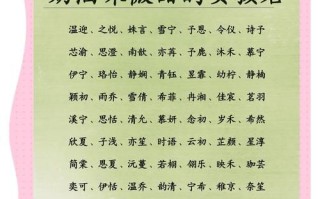 温迎、之悦、姝言、雪宁、于恩、令仪、诗予
芯渝、思澄、南歆、亦苒、子鹿、沐禾、慕宁
伊宁、珞怡、静娴、青钰、昱霏、幼柠、静楠
颖初、雨乔、雪倩、希蓓、冉湘、佳宸、茗羽
溪宁、思恬、清允、慕妍、念初、岁禾、希然
欣夏、子浅、亦笙、时语、云初、芷颜、星淳
简棠、恩夏、沅蔓、若桐、翎乐、映禾、伽芸
奕可、伊恬、温乔、韵清、宁希、稚京、奈笙